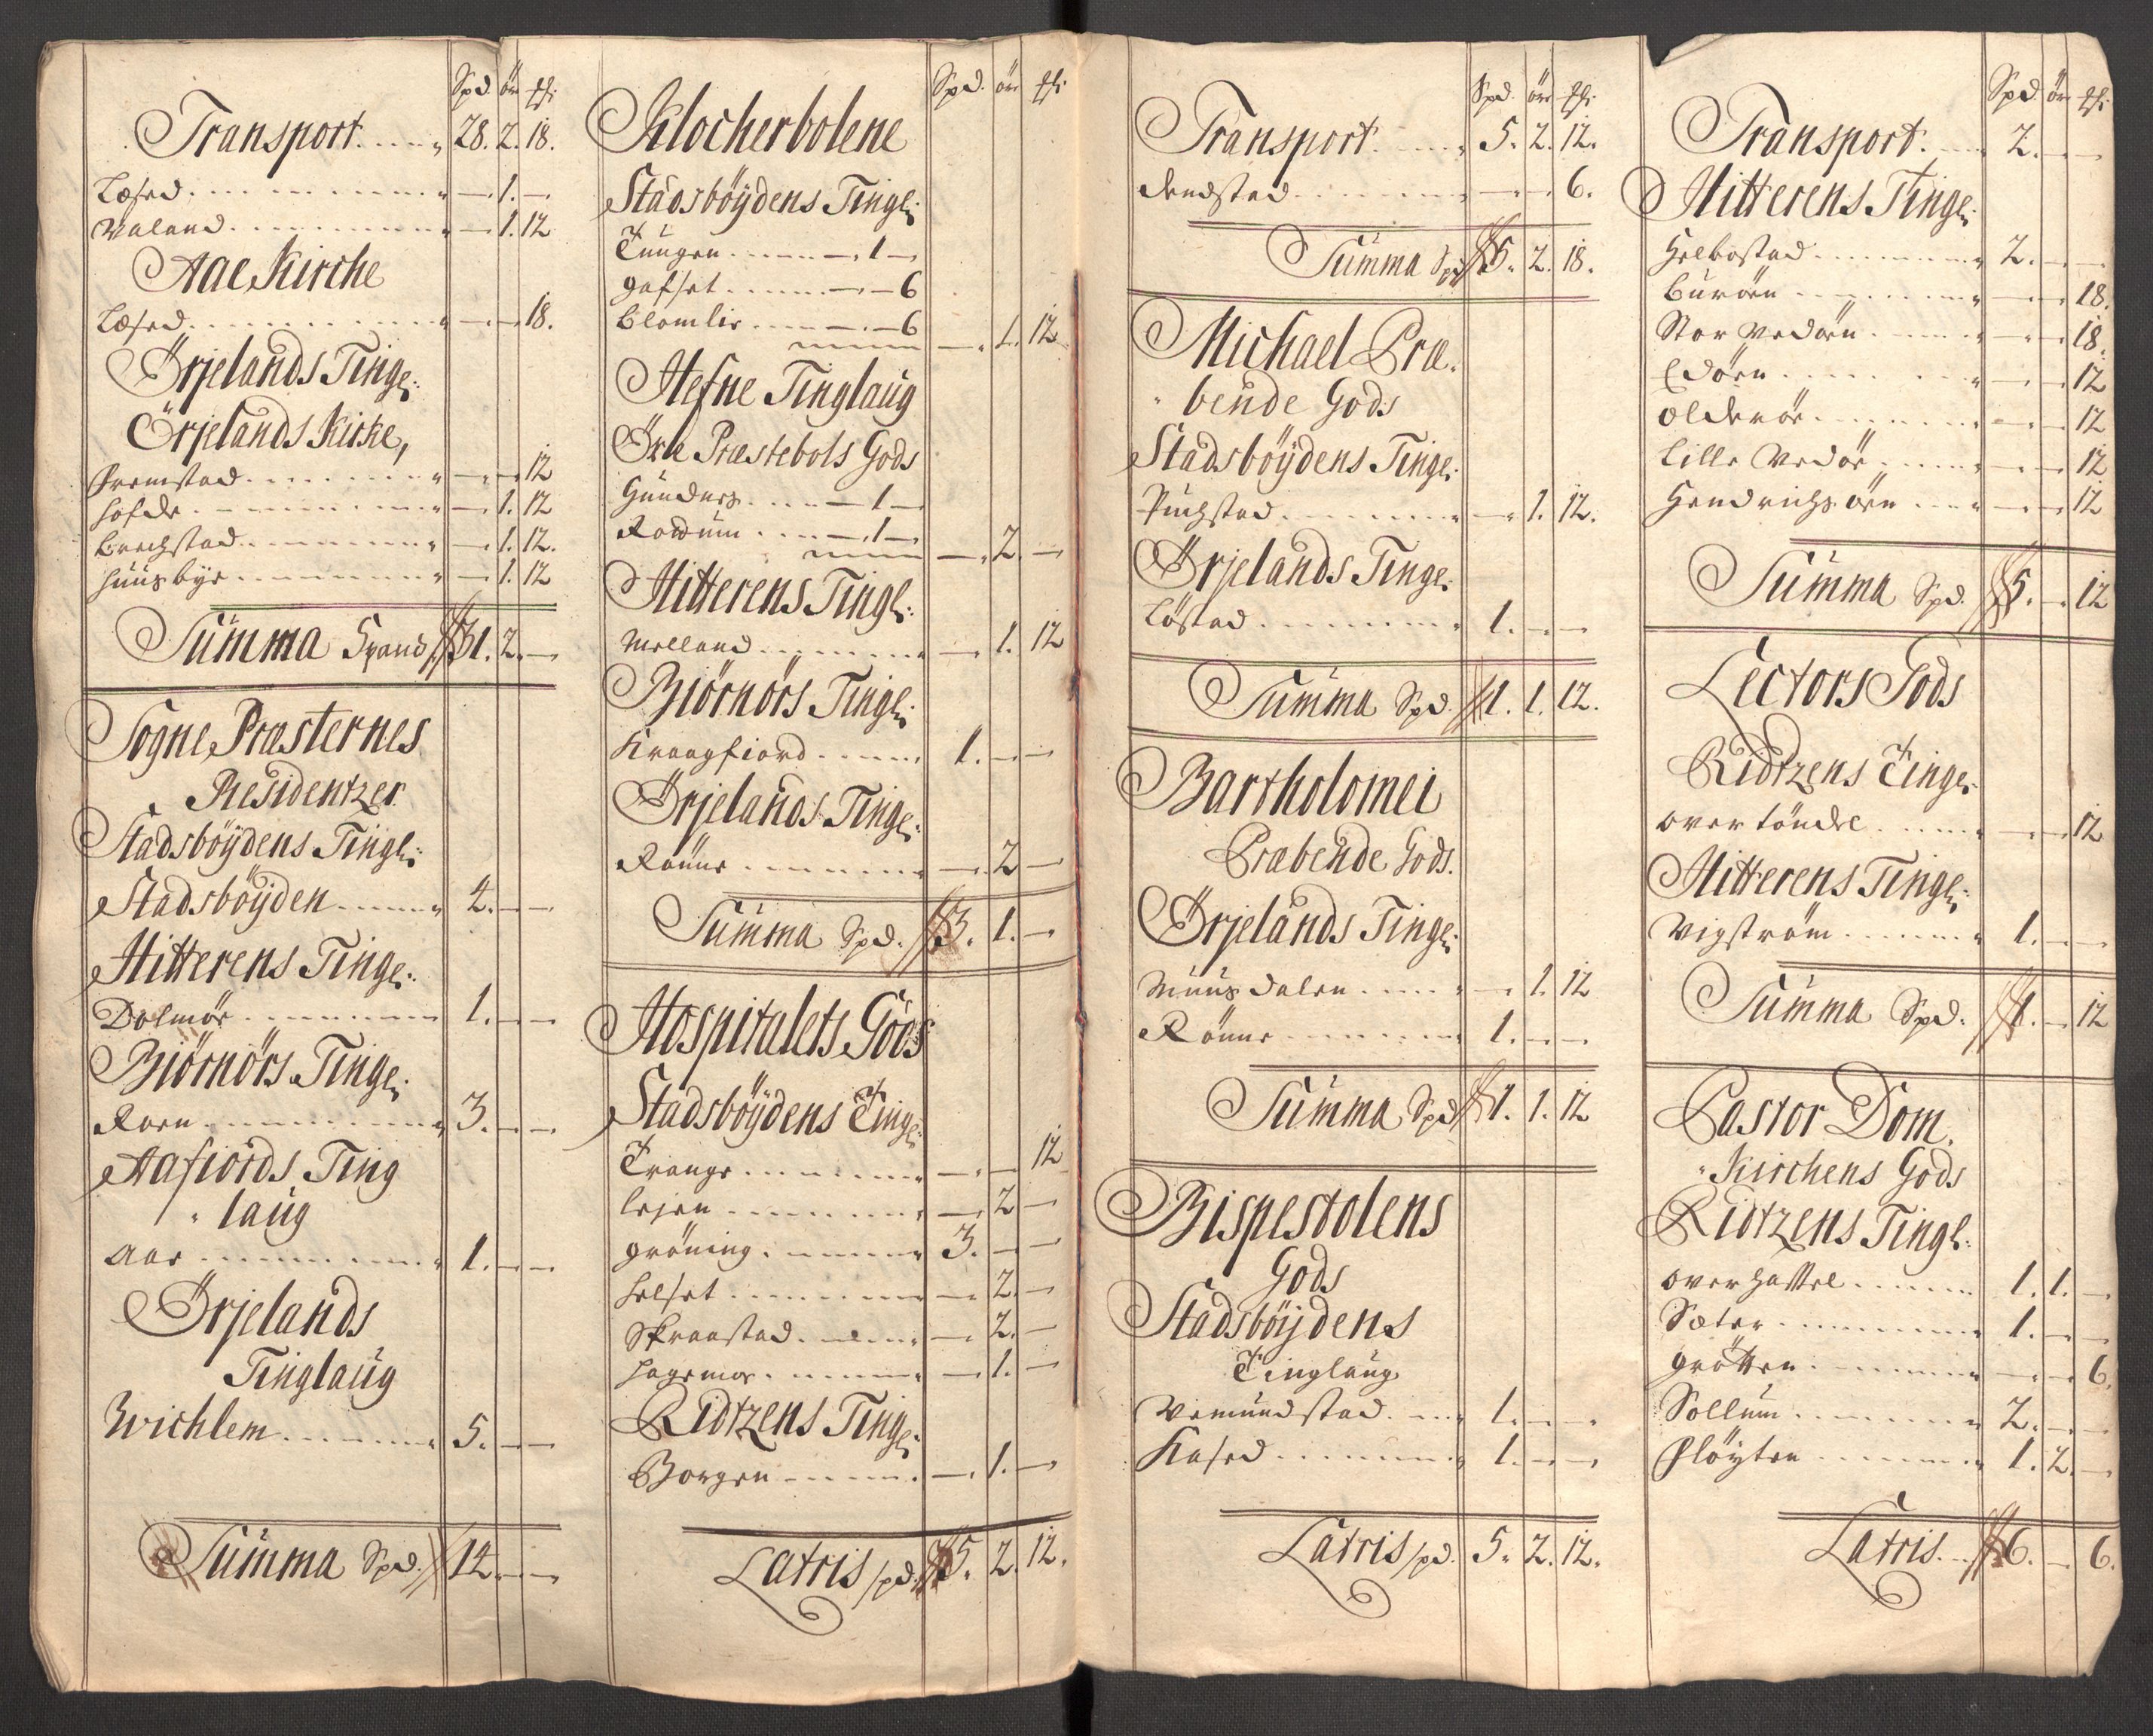 Spd. ör ʒʃ:
Transport. 28. 2. 18.
Læfsed. — 1. —
Valand. — 1. 12
Aae Kirche
Læfsed. — — 18.
Örjelands Tingl:
Örjelands Kirke,
Fremstad. — — 12
Hofde. — 1. 12
Brechstad. — 1. 12.
Huusbye. — 1. 12
Summa Spand 31. 2. —
Sogne Præsternes
Residentzer.
Stadsböydens Tingl:
Stadsböyden 4. — —
Hitterens Tingl:
Dolmöe. 1. — —
Biörnörs Tingl:
Roen. 3. — —
Aafiords Ting
laug
Aae 1. — —
Örjelands
Tinglaug
Wichlem. 5. — —
Summa Spd. 14. — —
Spd. ör
Klocherbolene
Stadsböydens Tingl:
Tungen — 1 —
Gafset. — — 6
Blomlie — — 6
— 1. 12
Hefne Tinglaug
Öxle Præstebols Gods
Gunders — 1 —
Rodum — 1 —
— 2. —
Hitterens Tingl:
Melland. — 1. 12
Biörnörs Tingl:
Kraagfiord. 1. — —
Örjelands Tingl:
Rönne — 2 —
Summa Spd. 3. 1. —
Hospitalets Gods
Stadsböydens Tingl:
Trange — — 12
Lejen — 2 —
Gröning. 3. — —
Helset — 2. —
Skraastad. — 2. —
Hagemoe. — 1. —
Ridtzens Tingl:
Borgen — 1. —
Latris spd. 5. 2. 12.
Spd. ör
Transport. 5. 2. 12.
Denstad. — — 6.
Summa Spd 5. 2. 18.
Michael Præ.
bende Gods
Stadsböydens Tingl:
Puchstad. — 1. 12.
Örjelands Tingl:
Löstad. 1. — —
Summa Spd. 1. 1. 12.
Bartholomei
Præbende Gods.
Örjelands Tingl:
Muusdalen — 1. 12
Rönne 1. — —
Summa Spd 1. 1. 12
Bispestolens
Gods
Stadsböydens
Tinglaug
Vemundstad. 1. — —
Kafsed. 1. — —
Latris spd. 5. 2. 12.
Spd. ör
Transport. 2. — —
Hitterens Tingl:
Helbostad. 2. — —
Buröen — — 18.
Stor Vedöen. — — 18.
Edöen. — — 12
Olderöe. — — 12
Lille Vedöe — — 12
Hendrichsöen — — 12
Summa Spd. 5. — 12
Lectors Gods
Ridtzens Tingl:
Overtöndel. — — 12
Hitterens Tingl:
Vigström 1. — —
Summa Spd. 1. — 12
Pastor Dom.
Kirchens Gods
Ridtzens Tingl:
Overhassel. 1. 1. —
Sæter 1. — —
Grötten — — 6.
Sollum 2. — —
Flöyten 1. 2. —
Latris. 6. — 6.